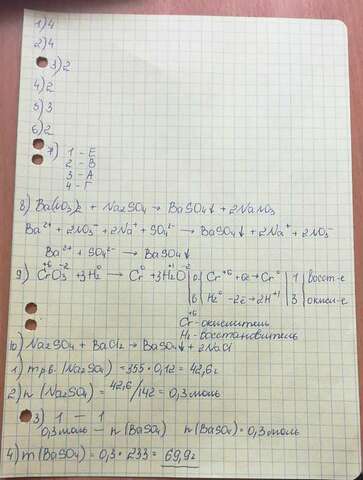 1) 4
2) 4
3) 2
4) 2
5) 3
6) 2
7) 1 - Е
2 - В
3 - А
4 - Г
8) Ba(NO₃)₂ + Na₂SO₄ → BaSO₄↓ + 2NaNO₃
Ba²⁺ + 2NO₃⁻ + 2Na⁺ + SO₄²⁻ → BaSO₄↓ + 2Na⁺ + 2NO₃⁻
Ba²⁺ + SO₄²⁻ → BaSO₄↓
9) Cr⁺⁶O₃⁻² + 3H₂⁰ → Cr⁰ + 3H₂⁺¹O⁻² Cr⁺⁶ + 6e → Cr⁰ | 1 | восст-е
6 | H₂⁰ - 2e → 2H⁺¹ | 3 | окисл-е
Cr⁺⁶ - окислитель
H₂ - восстановитель
10) Na₂SO₄ + BaCl₂ → BaSO₄↓ + 2NaCl
1) m р.в. (Na₂SO₄) = 355 · 0,12 = 42,6 г
2) n (Na₂SO₄) = 42,6/142 = 0,3 моль
3) 1 — 1
0,3 моль — n (BaSO₄) n (BaSO₄) = 0,3 моль
4) m (BaSO₄) = 0,3 · 233 = 69,9 г